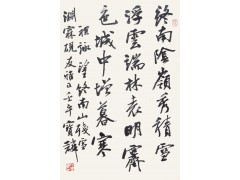 終南陰嶺秀積雪
浮雲端林表明霽
色城中增暮寒
祖詠望終南山殘雪
淵霖硯友雅正壬午寶麟